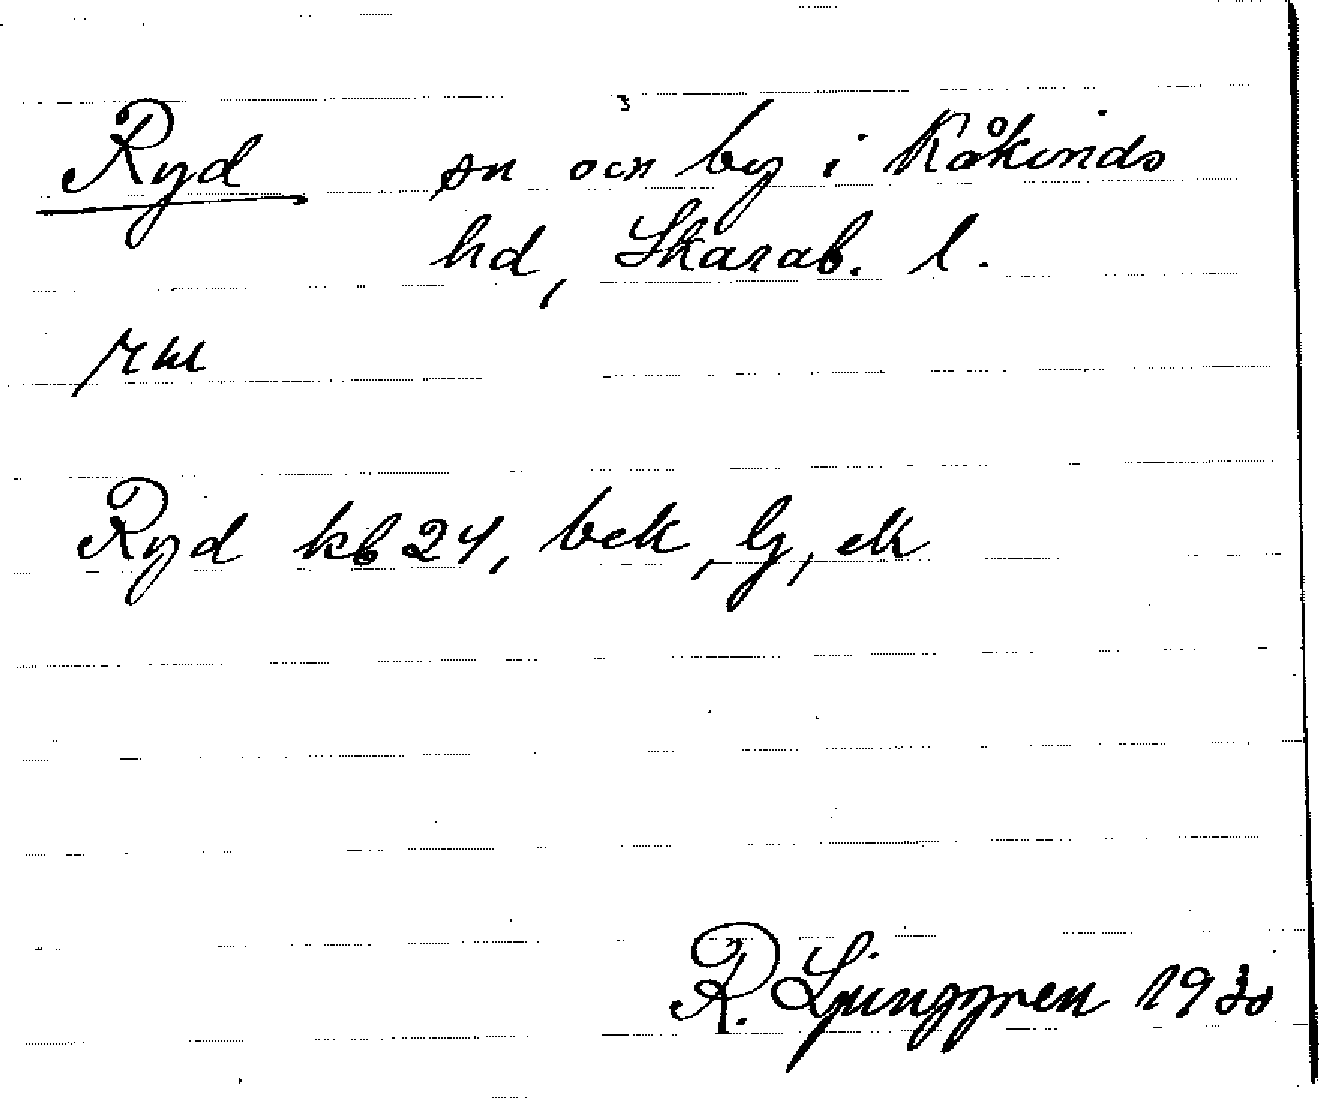 Ryd sn och by i Kåkinds
hd, Skarab. l.
Ryd kb 24, bek, lg, ek
R. Ljunggren 1930